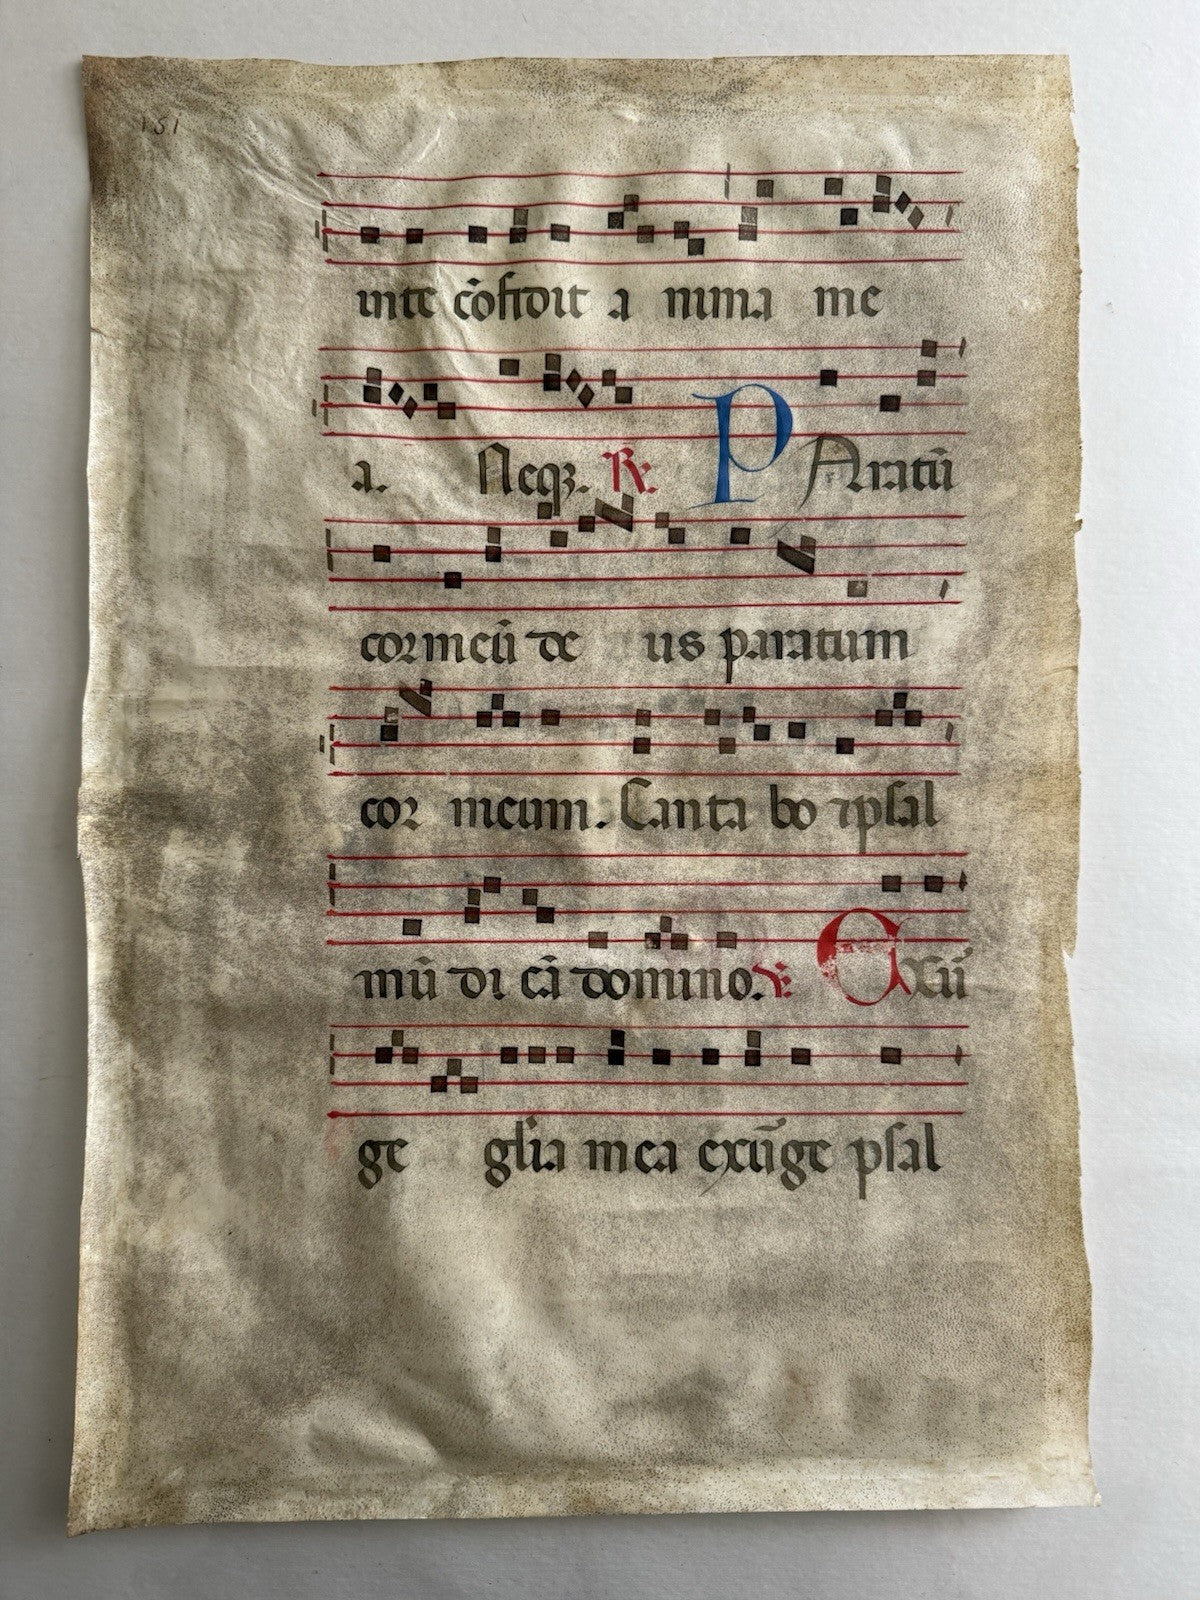 151
in te cōfidit a nima me
a. Neqꝫ. ℟. PAratū
cor meū de us paratum
cor meum. Canta bo ⁊ psal
mū di cā domino. ℣. Exū
ge glīa mea exūge psal